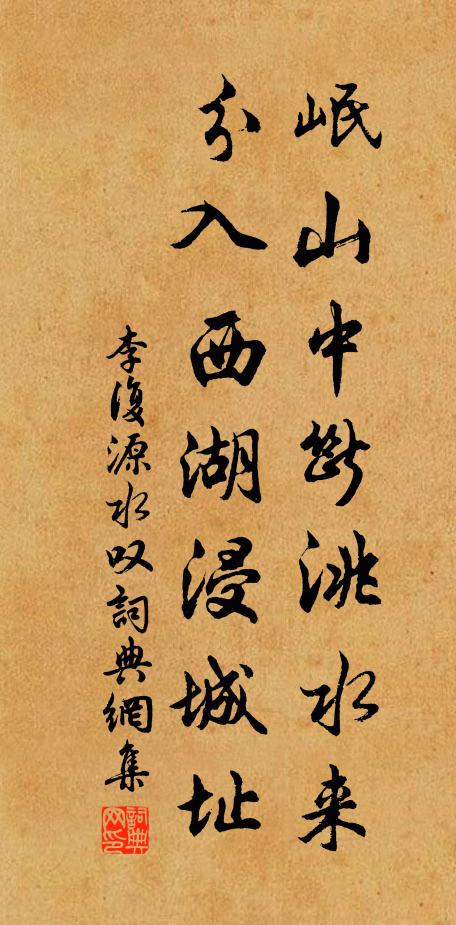 岷山中斷洮水来
分入西湖浸城址
李復源水叹詞典網集
詞典网印